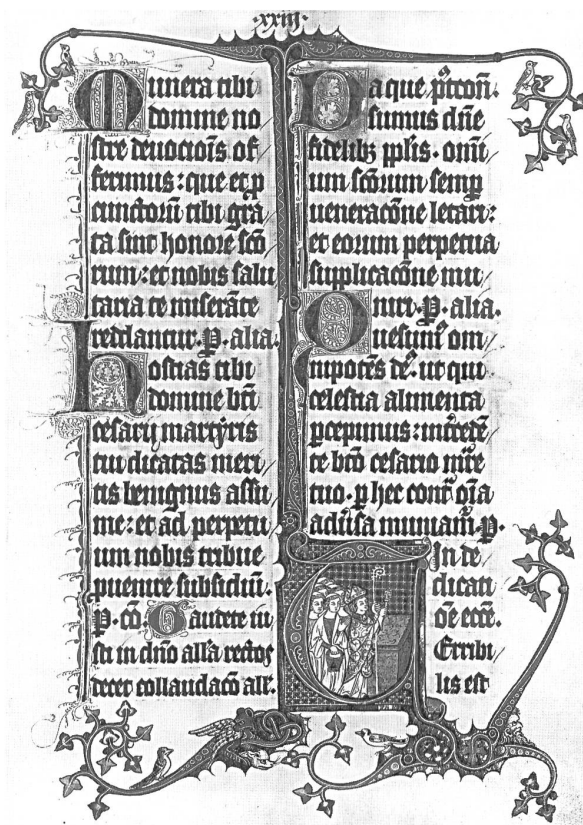 ·xxiij·
Munera tibi
domine no
stre deuociōis of
ferimus : que et ꝓ
cunctorū tibi gra
ta sint honore scō
rum : et nobis salu
taria te miserāte
reddantur. P. alia.
Hostias tibi
domine bti
cesarij martyris
tui dicatas meri
tis benignus assu
me : et ad perpetu
um nobis tribue
puenire subsidiū.
P. cō. Gaudete iu
sti in dño alla rectos
decet collaudacō alle.
Da que
sumus dñe
fidelibꝫ pplis. omī
um scōrum semp
ueneracōne letari :
et eorum perpetua
supplicacōne mu
niri. P. alia.
Quesum om
nipotēs de. ut qui
celestia alimenta
pcepimus : intcedē
te btō cesario mre
tuo. p hec cont oīa
aduersa muniam. P.
In de
dicati
ōe ecce.
Terribi
lis est